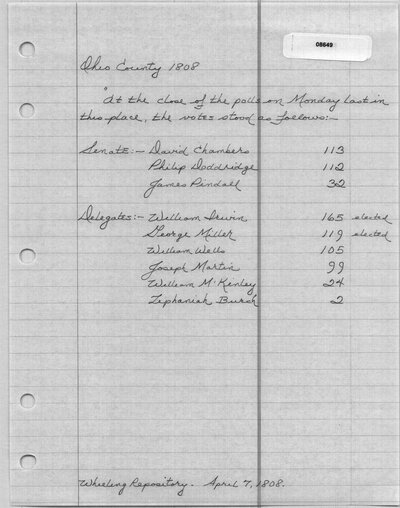 08649
Ohio County 1808
"At the close of the polls on Monday last in
this place, the votes stood as follows:—
Senate:— David Chambers 113
Philip Doddridge 112
James Pindall 32
Delegates:— William Irwin 165 elected
George Miller 119 elected
William Wells 105
Joseph Martin 99
William McKinley 24
Zephaniah Burch 2
Wheeling Repository. April 7, 1808.